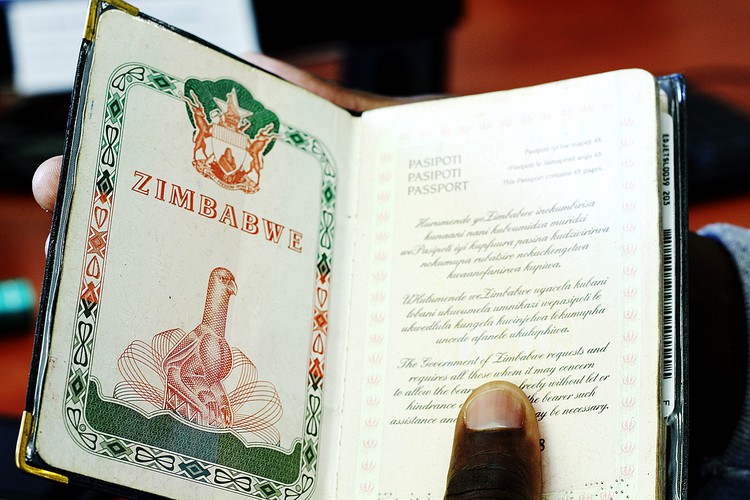 ZIMBABWE
PASIPOTI
PASIPOTI
PASSPORT
This Passport contains 48 pages.
Hurumende yeZimbabwe inokumbirisa
kunaani nani kuboumidza muridzi
wePasipoti iyi kupfuura pasina kudzivirirwa
nokumupa rubatsiro nokuchengetwa
kwaanofanirwa kupiwa.
UHulumende weZimbabwe uyacela kubani
lobani ukuvumela umnikazi wepasipoti le
ukwedlula kungela kuvinjelwa lokumupha
uncedo afanele ukuluphiwa.
The Government of Zimbabwe requests and
requires all those whom it may concern
to allow the bearer freely without let or
hindrance the bearer such
assistance and may be necessary.